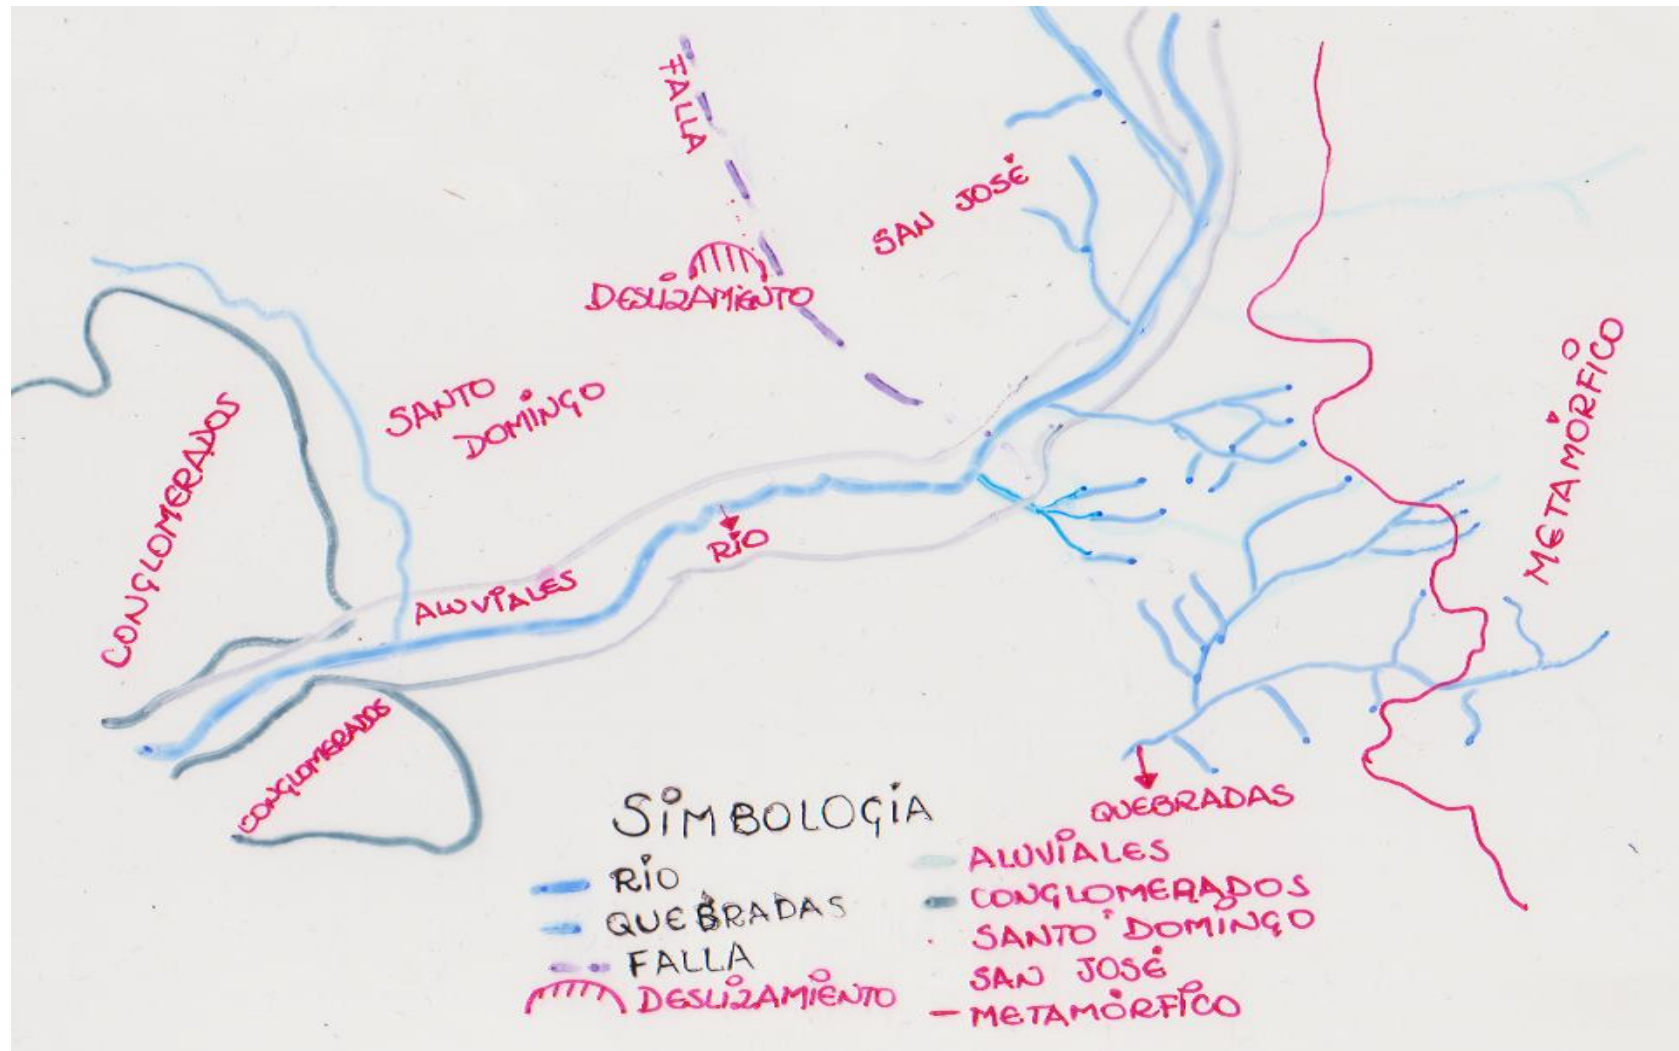 FALLA
SAN JOSÉ
DESLIZAMIENTO
SANTO
DOMINGO
CONGLOMERADOS
METAMÓRFICO
RÍO
ALUVIALES
CONGLOMERADOS
QUEBRADAS
SIMBOLOGÍA
RÍO
QUEBRADAS
FALLA
DESLIZAMIENTO
ALUVIALES
CONGLOMERADOS
SANTO DOMINGO
SAN JOSÉ
METAMÓRFICO